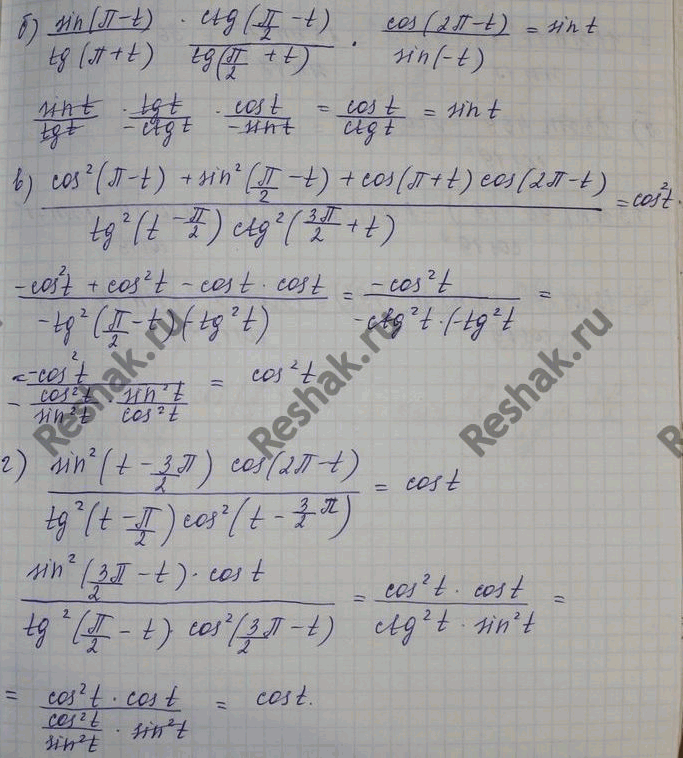 б) sin(π-t)/tg(π+t) · ctg(π/2 -t)/tg(π/2 +t) · cos(2π-t)/sin(-t) = sin t
sin t/tg t · tg t/-ctg t · cos t/-sin t = cos t/ctg t = sin t
в) (cos²(π-t) + sin²(π/2 -t) + cos(π+t) cos(2π-t))/(tg²(t -π/2) ctg²(3π/2 +t)) = cos²t.
(-cos²t + cos²t - cos t · cos t)/(-tg²(π/2 -t)·(-tg²t)) = -cos²t/(-ctg²t · (-tg²t) =
= -cos²t/(-cos²t/sin²t · sin²t/cos²t) = cos²t
г) (sin²(t - 3/2 π) cos(2π-t))/(tg²(t -π/2) cos²(t - 3/2 π)) = cos t
(sin²(3/2 π -t) · cos t)/(tg²(π/2 - t) · cos²(3/2 π -t)) = (cos²t · cos t)/(ctg²t · sin²t) =
= (cos²t · cos t)/(cos²t/sin²t · sin²t) = cos t.
Reshak.ru
Reshak.ru
Reshak.ru